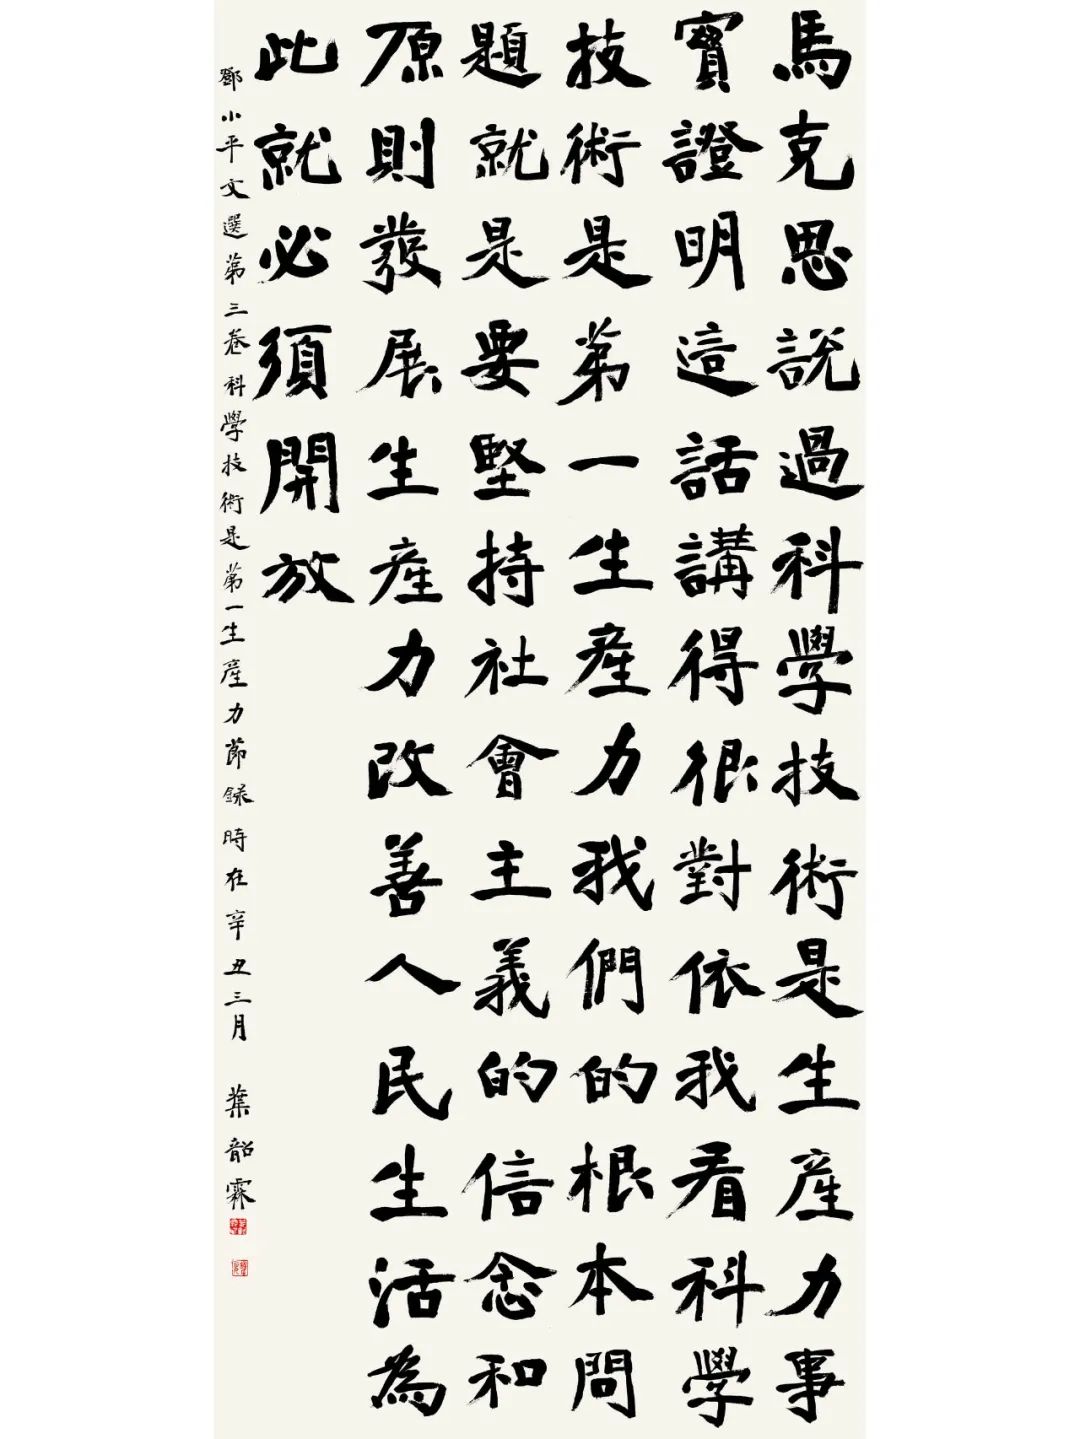 馬克思說過科學技術是生產力事
實證明這話講得很對依我看科學
技術是第一生產力我們的根本問
題就是要堅持社會主義的信念和
原則發展生產力改善人民生活為
此就必須開放
鄧小平文選第三卷科學技術是第一生產力節錄時在辛丑三月 葉韶霖